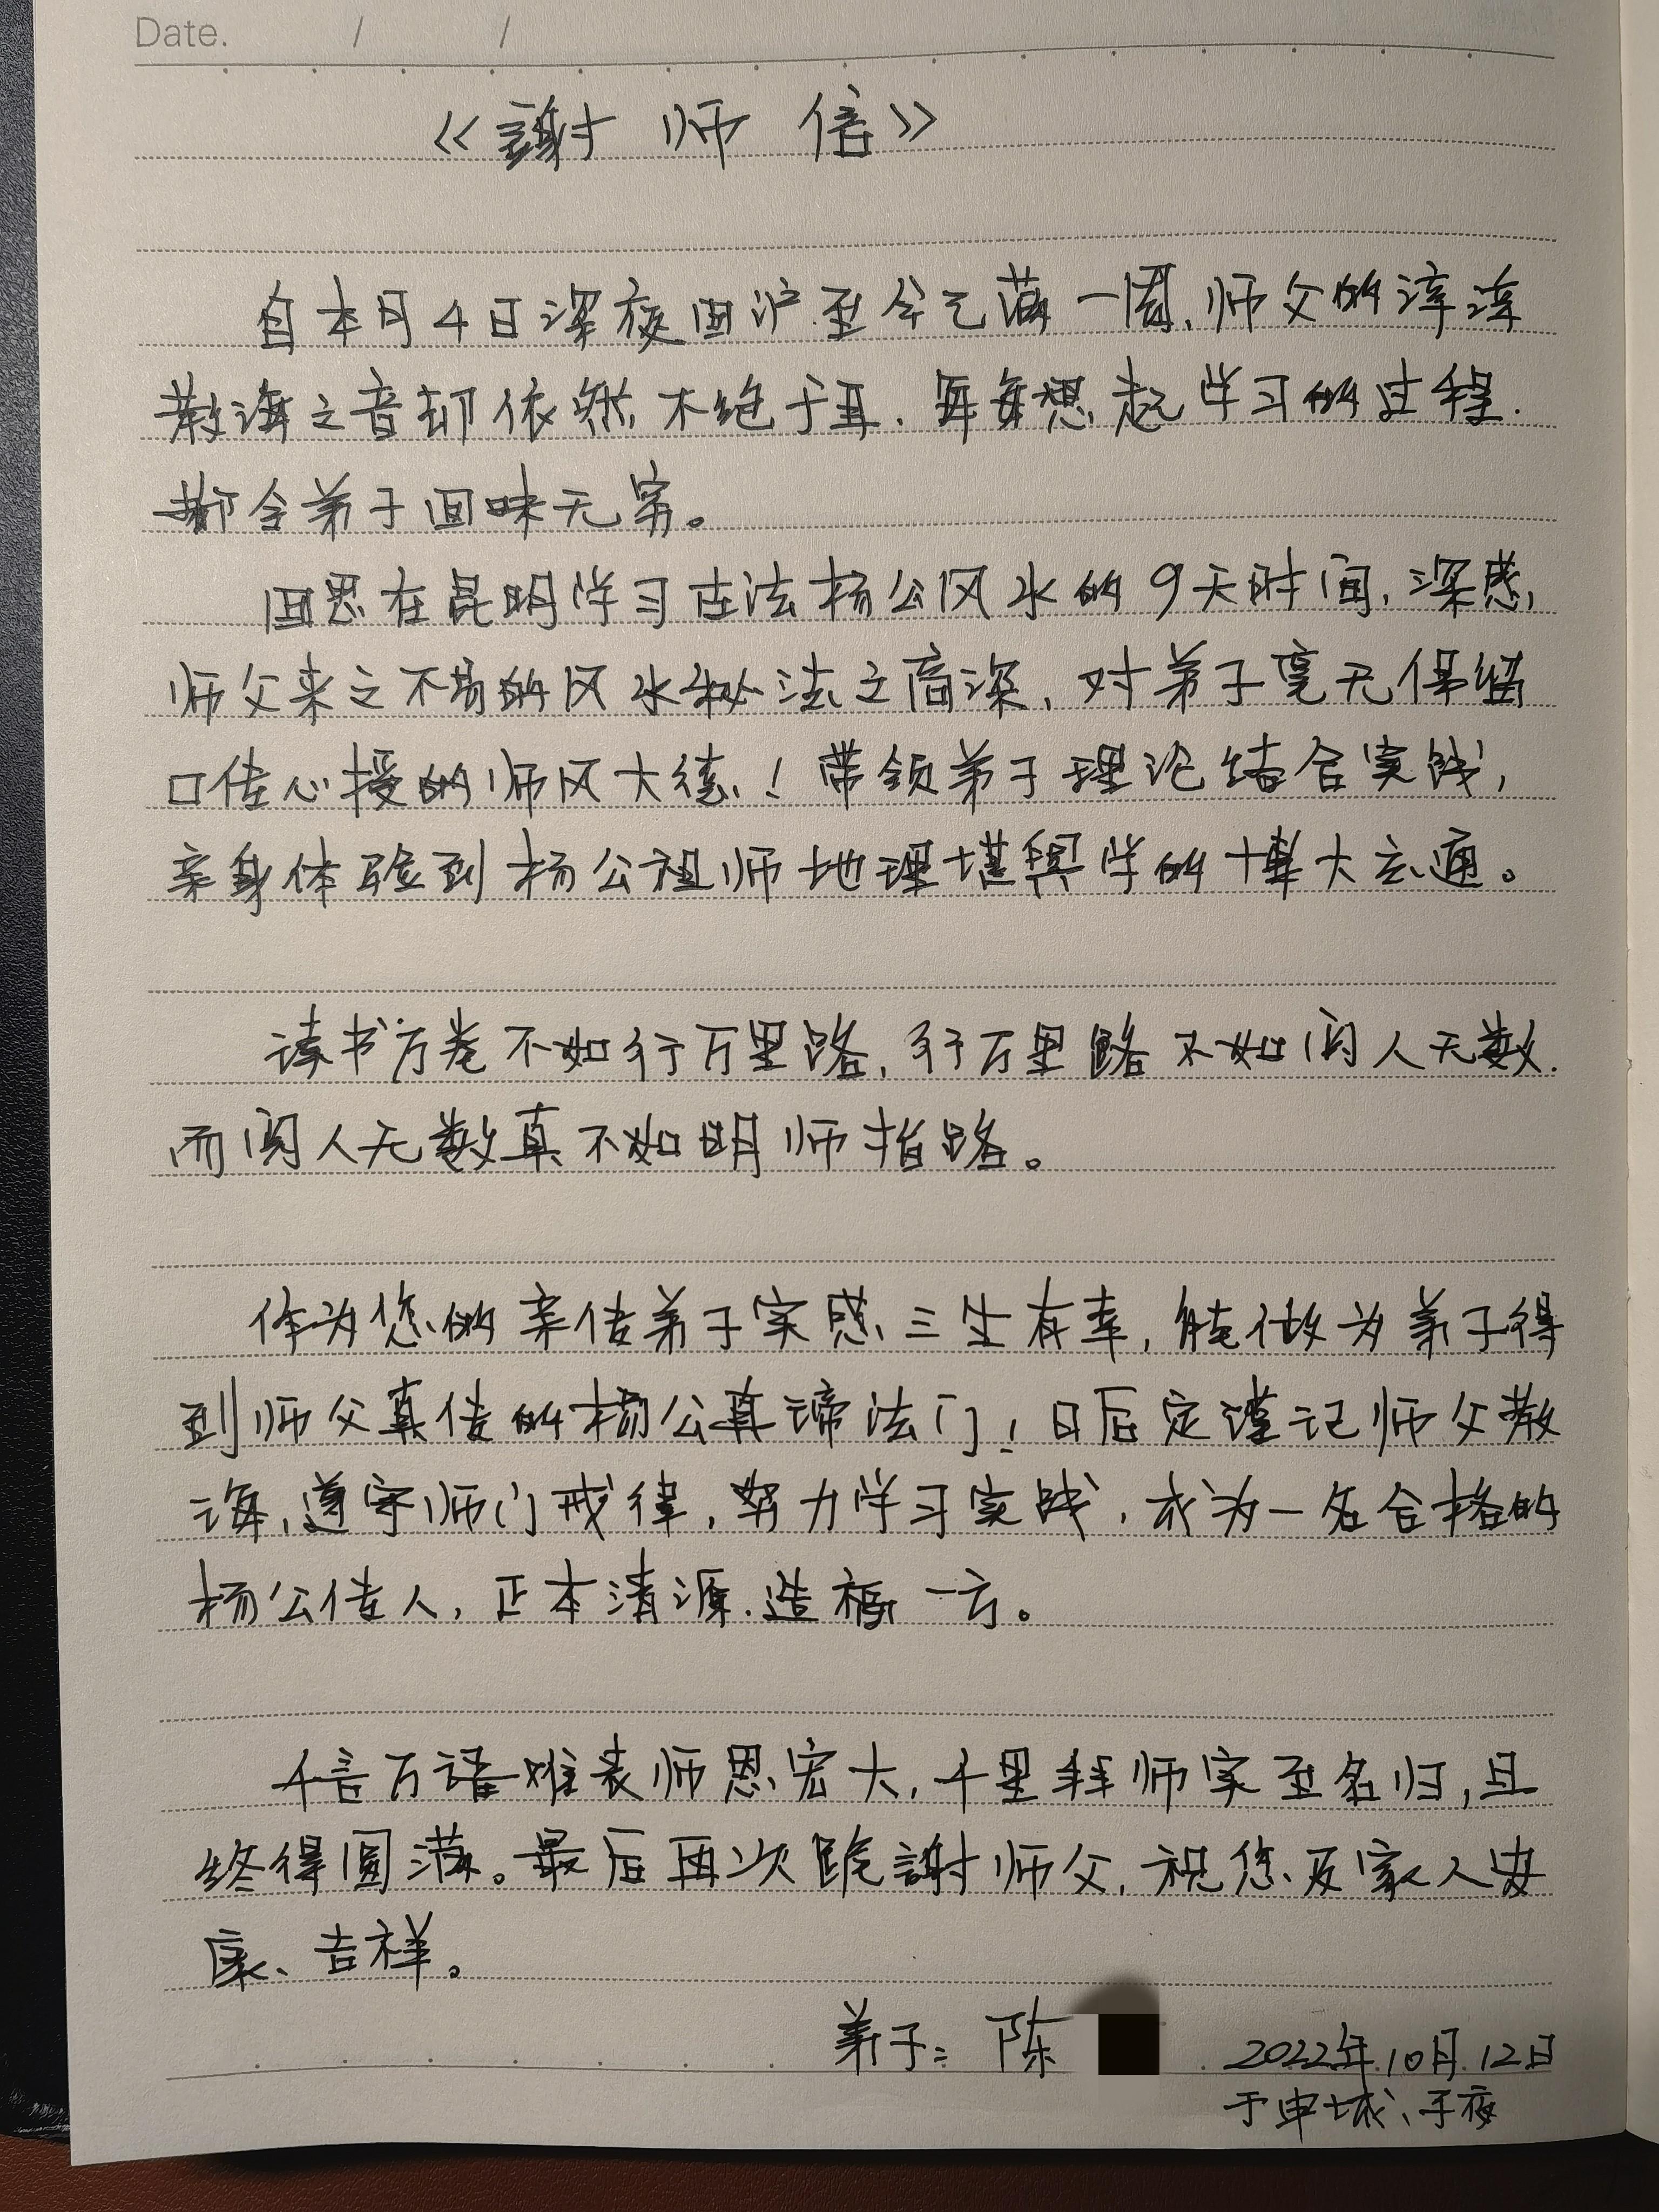 Date. / /
《謝师信》
自本月4日深夜回沪至今已满一周,师父的谆谆
教诲之音却依然不绝于耳.每每想起学习的过程.
都令弟子回味无穷。
回思在昆明学习古法杨公风水的9天时间,深感
师父来之不易的风水秘法之高深,对弟子毫无保留
口传心授的师风大德!带领弟子理论结合实践,
亲身体验到杨公祖师地理堪舆学的博大玄通。
读书万卷不如行万里路,行万里路不如阅人无数.
而阅人无数真不如明师指路。
作为您的亲传弟子实感三生有幸,能做为弟子得
到师父真传的杨公真谛法门!日后定谨记师父教
诲,遵守师门戒律,努力学习实践,成为一名合格的
杨公传人,正本清源.造福一方。
千言万语难表师恩宏大,千里拜师实至名归,且
终得圆满。最后再次跪謝师父,祝您及家人安
康、吉祥。
弟子:陈 2022年10月12日
于申城、子夜